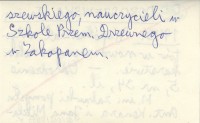 szewskiego, nauczycieli w
Szkole Przem. Drzewnego
w Zakopanem.